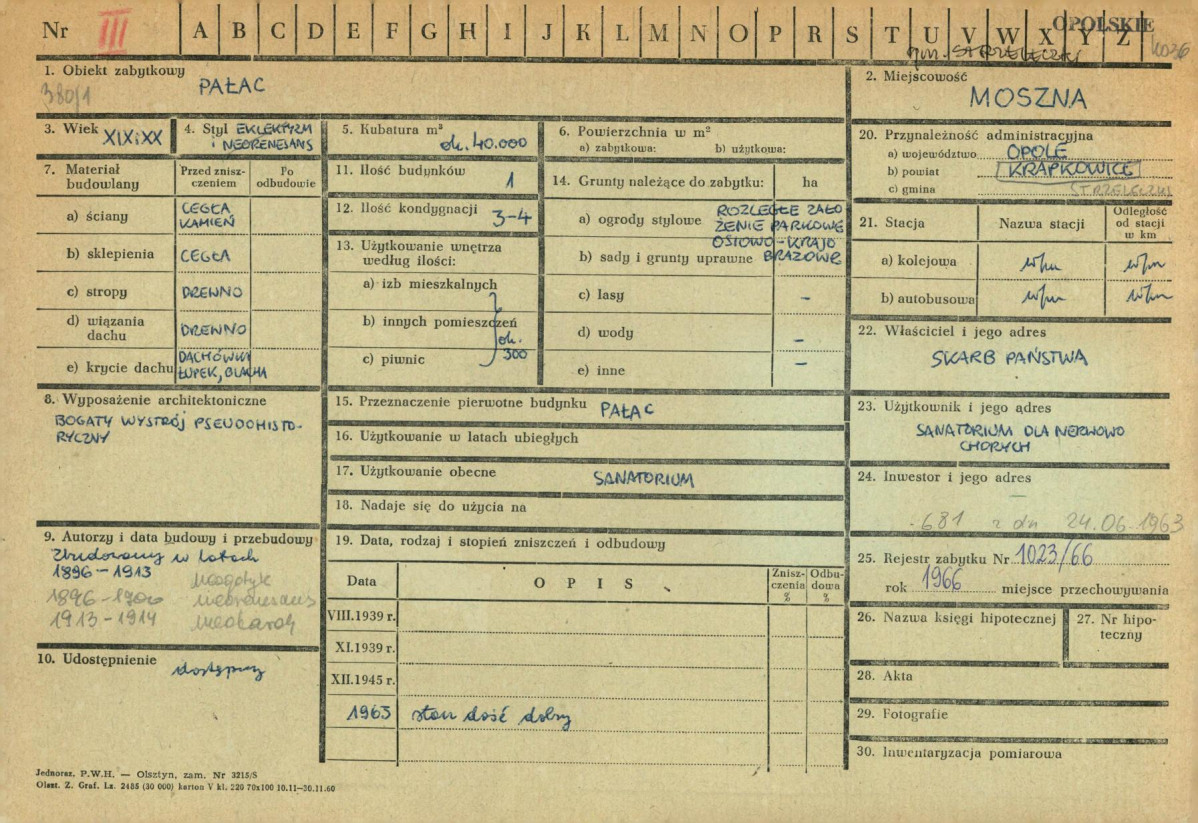 Nr III A B C D E F G H I J K L M N O P R S T U V W X Y Z
OPOLSKIE
gm. STRZELECZKI
1. Obiekt zabytkowy
380/1
PAŁAC
2. Miejscowość
MOSZNA
3. Wiek XIX i XX
4. Styl EKLEKTYZM
i NEORENESANS
5. Kubatura m³
ok. 40.000
6. Powierzchnia w m²
a) zabytkowa: b) użytkowa:
7. Materiał
budowlany
Przed znisz-
czeniem
Po
odbudowie
a) ściany
CEGŁA
KAMIEŃ
b) sklepienia CEGŁA
c) stropy DREWNO
d) wiązania
dachu
DREWNO
e) krycie dachu
DACHÓWKA
ŁUPEK, BLACHA
8. Wyposażenie architektoniczne
BOGATY WYSTRÓJ PSEUDOHISTO-
RYCZNY
9. Autorzy i data budowy i przebudowy
Zbudowany w latach
1896 - 1913 neogotyk
1896 - 1900 neorenesans
1913 - 1914 neobarok
10. Udostępnienie
dostępny
11. Ilość budynków
1
12. Ilość kondygnacji
3-4
13. Użytkowanie wnętrza
według ilości:
a) izb mieszkalnych
b) innych pomieszczeń
c) piwnic
ok.
300
14. Grunty należące do zabytku: ha
a) ogrody stylowe
ROZLEGŁE ZAŁO
ŻENIE PARKOWE
OSIOWO-KRAJO
BRAZOWE
b) sady i grunty uprawne
c) lasy -
d) wody -
e) inne -
15. Przeznaczenie pierwotne budynku PAŁAC
16. Użytkowanie w latach ubiegłych
17. Użytkowanie obecne SANATORIUM
18. Nadaje się do użycia na
19. Data, rodzaj i stopień zniszczeń i odbudowy
Data OPIS
Znisz-
czenia
%
Odbu-
dowa
%
VIII.1939 r.
XI.1939 r.
XII.1945 r.
1963 stan dość dobry
20. Przynależność administracyjna
a) województwo OPOLE
b) powiat KRAPKOWICE
c) gmina STRZELECZKI
21. Stacja Nazwa stacji
Odległość
od stacji
w km
a) kolejowa w/m w/m
b) autobusowa w/m w/m
22. Właściciel i jego adres
SKARB PAŃSTWA
23. Użytkownik i jego adres
SANATORIUM DLA NERWOWO
CHORYCH
24. Inwestor i jego adres
—
681 z dn 24.06.1963
25. Rejestr zabytku Nr 1023/66
rok 1966 miejsce przechowywania
26. Nazwa księgi hipotecznej
27. Nr hipo-
teczny
28. Akta
29. Fotografie
30. Inwentaryzacja pomiarowa
Jednoraz. P.W.H. — Olsztyn, zam. Nr 3215/S
Olszt. Z. Graf. Lz. 2485 (30 000) karton V kl. 220 70x100 10.11—30.11.60